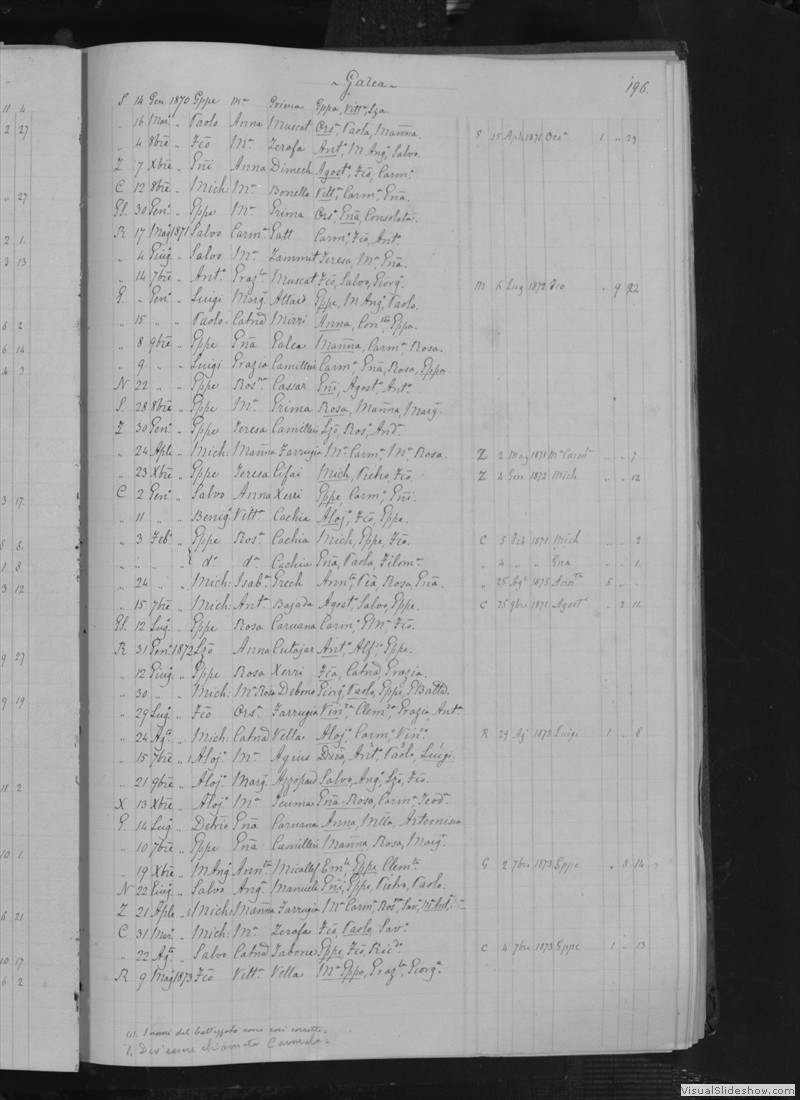 Galea
196.
S 14 Gen 1870 Gppe Mª Prima Gppa, Vittª, Lza
„ 16 Marº „ Paolo Anna Muscat Orsª, Paola, Manna.
S 25 Aple 1871 Orsª 1 „ 23
„ 4 8bre „ Fco Mª Zerafa Antª, M Angª, Salvª.
Z 7 Xbre „ Eni Anna Dimech Agostª, Fco, Carmª.
C 12 8bre „ Mich: Mª Bonello Vittª, Carmª, Ena.
30 Genº „ Gppe Mª Prima Orsª, Ena, Consolata.
R 17 Magº 1871 Salvo Carmª Gatt Carmª, Fco, Antº.
„ 4 Giugº „ Salvo Mª Zammit Teresa, Mª, Ena.
„ 14 7bre „ Antº Grazla Muscat Fco, Salvo, Giorgº.
M 6 Lug 1872 Fco „ 9 22
G. „ Genº „ Luigi Margª Attard Gppe, M Angº, Paolo.
„ 15 „ „ Paolo Catnª Mizzi Anna, Gppa.
„ 8 9bre „ Gppe Ena Galea Manna, Carmª, Rosa.
„ 9 „ „ Luigi Grazia Camilleri Carmª, Ena, Rosa, Gppa.
N 22 „ „ Gppe Rosª Cassar Eni, Agostº, Antº.
S. 28 8bre „ Gppe Mª Prima Rosa, Manna, Margª.
Z 30 Genº „ Gppe Teresa Camilleri Lzo, Rosº, Andª.
„ 24 Aple „ Mich: Manna Farrugia Mª Carmª, Mª Rosa.
Z 2 Mag 1871 Mª Carmª „ „ 7
„ 23 Xbre „ Gppe Teresa Cifai Mich, Pietro, Fco.
Z 4 Gen 1872 Mich „ „ 12
C 2 Genº „ Salvo Anna Xerri Gppe, Carmº, Eni.
„ 11 „ „ Benigº Vittª Cachia Alojº, Fco, Gppe.
„ 3 Febº „ Gppe Rosª Cachia Mich, Gppe, Fco.
C 5 Feb 1871 Mich „ „ 2
„ dº dª Cachia Ena, Paola, Filomª.
„ 4 „ „ Ena „ „ 1.
„ 24 „ „ Mich: Isabª Grech Annta, Rosa, Ena.
„ 25 Agº 1875 Annta 5 „ „
„ 15 7bre „ Mich: Antª Bajada Agostº, Salvo, Gppe.
C 25 9bre 1871 Agost „ 2 11.
12 Lugº „ Gppe Rosa Caruana Carmº, Fco.
R 31 Genº 1872 Lzo Anna Cutajar Antº, Alfº, Gppe.
„ 12 Giugº „ Gppe Rosa Xerri Fca, Catnª, Grazia.
„ 30 „ „ Mich: Mª Rosa Debono Giorgº, Paolo, Gppe, GBatta.
„ 29 Lugº „ Fco Orsª Farrugia Clemta, Grazia, Antª.
„ 24 Agº „ Mich: Catnª Vella Alojº, Carmº,
R 29 Agº 1873 Luigi 1 „ 8
„ 15 7bre „ Alojº Mª Agius Antº, Paolo, Luigi.
„ 21 9bre „ Alojº Margª Azzopard Salvo, Angº, Lzo, Fco.
X 13 Xbre „ Alojº Mª Ena-Rosa, Carmª, Teodª.
G. 14 Lugº „ Ena Caruana Anna, Antonia
„ 10 7bre „ Gppe Ena Camilleri Manna, Rosa, Margª.
„ 19 Xbre „ M Angº Annta Micallef Emle, Gppe, Clemte.
G 2 7bre 1873 Gppe „ 8 14
N 22 Giugº „ Salvo Angª Eni, Gppe, Pietro, Paolo.
Z 21 Aple „ Mich: Manna Farrugia Mª Carmª, Rosª, Savª,
C 31 Marº „ Mich: Mª Zerafa Fco, Paolo, Savº.
„ 22 Agº „ Salvo Catnª Tabone Gppe, Fco, Ricº.
C 4 7bre 1873 Gppe 1 „ 13
R 9 Magº 1873 Fco Vittª Vella Mª Gppa, Grazla, Giorgª.
(1). I nomi del battezzato sono così corretti =
1. Dev'essere chiamata Carmela =
11 4
2 27
„ 27
2 1.
3 13
6 2
6 14
4 3
3 17.
8 8.
1 8.
3 12
9 27
9 19
11 2
10 1.
6 21
10 17
6 2
VisualSlideshow.com